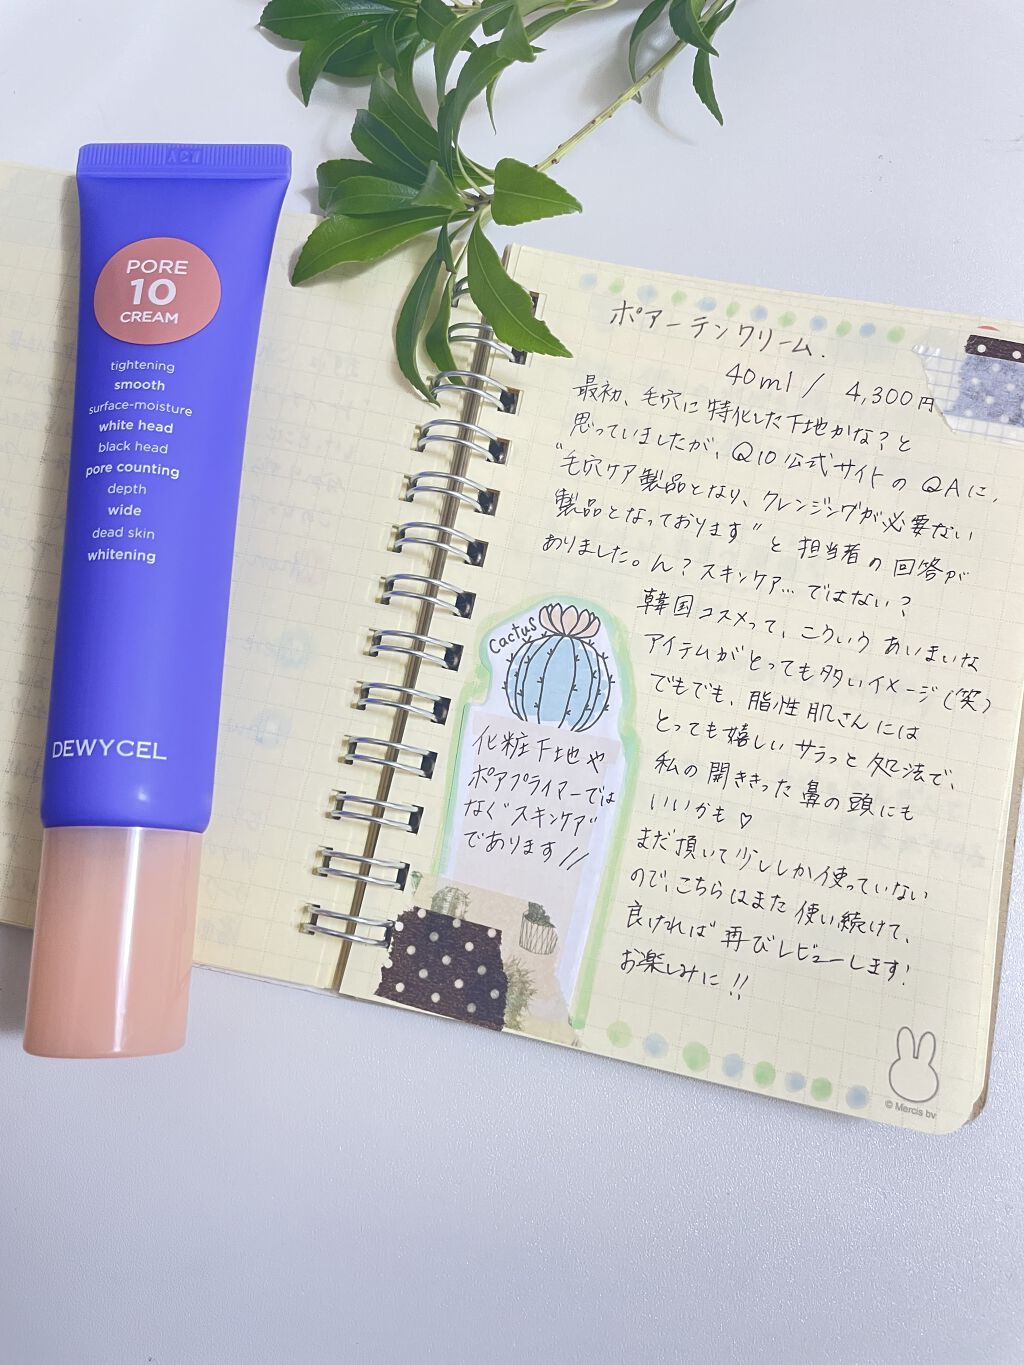 PORE
10
CREAM
tightening
smooth
surface-moisture
white head
black head
pore counting
depth
wide
dead skin
whitening
DEWYCEL
ポアーテンクリーム.
40ml / 4,300円
最初、毛穴に特化した下地かな？と
思っていましたが、Q10公式サイトのQAに、
"毛穴ケア製品となり、クレンジングが必要ない
製品となっております"と担当者の回答が
ありました。ん？スキンケア…ではない？
韓国コスメって、こういうあいまいな
アイテムがとっても多いイメージ(笑)
でもでも、脂性肌さんには
とっても嬉しいサラっと処法で、
私の開ききった鼻の頭にも
いいかも♡
まだ頂いて少ししか使っていない
ので、こちらはまた使い続けて、
良ければ再びレビューします！
お楽しみに!!
Cactus
化粧下地や
ポアプライマーでは
なく"スキンケア"
であります//
© Mercis bv